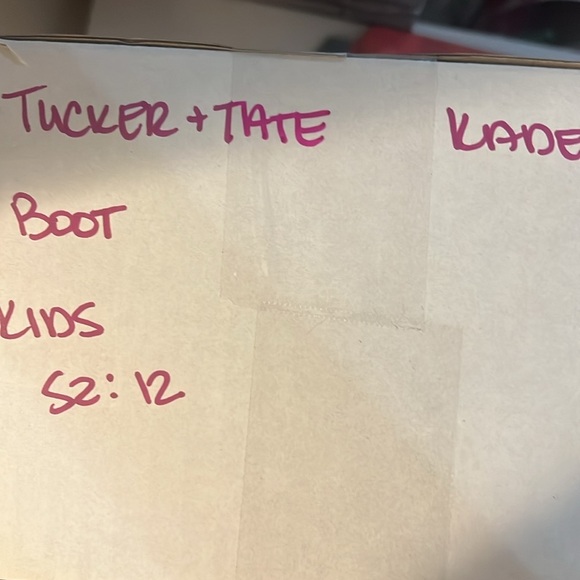 TUCKER + TATE KADE
BOOT
KIDS
SZ: 12